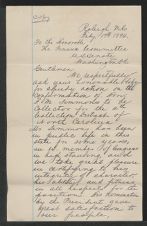 Raleigh N.C.
To the Honorable
The Finance Committee
U.S. Senate
Washington D.C.
Gentlemen
We respectfully
ask your honorable body
for speedy action on the
Confirmation of Hon
F. M. Simmons to be
Collector for the 4th
Collection District of
North Carolina.
Mr Simmons has been
in public life in this
State for some years,
as a member of Congress
in high standing, and
we take great pleasure
in certifying to his
integrity of character
his ability and fitness
in the
position. His
by the President gave
great satisfaction to
our people.